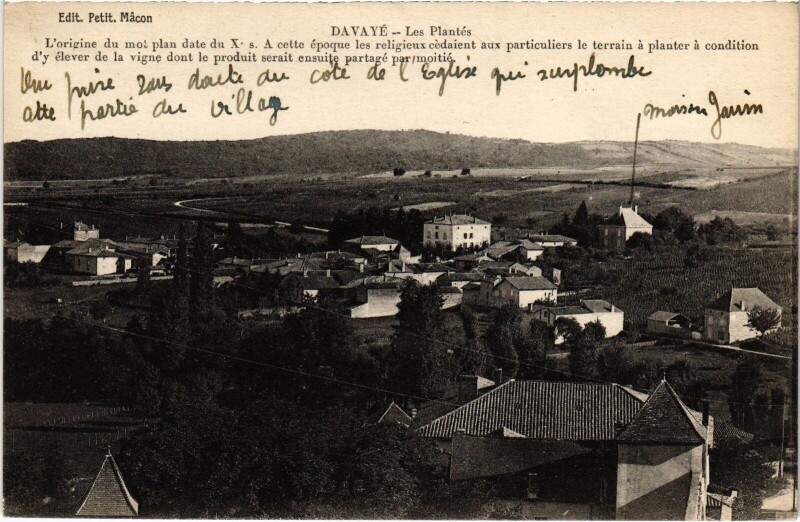 Edit. Petit, Mâcon
DAVAYÉ -- Les Plantés
L'origine du mot plan date du Xᵉ s. A cette époque les religieux cèdaient aux particuliers le terrain à planter à condition
d'y élever de la vigne dont le produit serait ensuite partagé par moitié.
Vue prise sans doute du côté de l'Eglise qui surplombe
cette partie du village
maison Janin